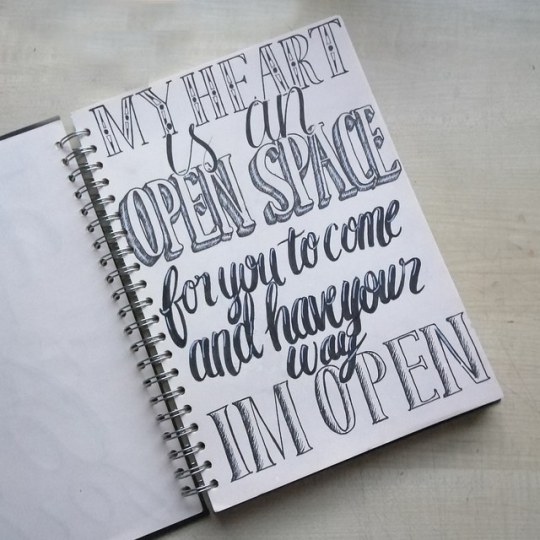 MY HEART
is an
OPEN SPACE
for you to come
and have your
way
IM OPEN